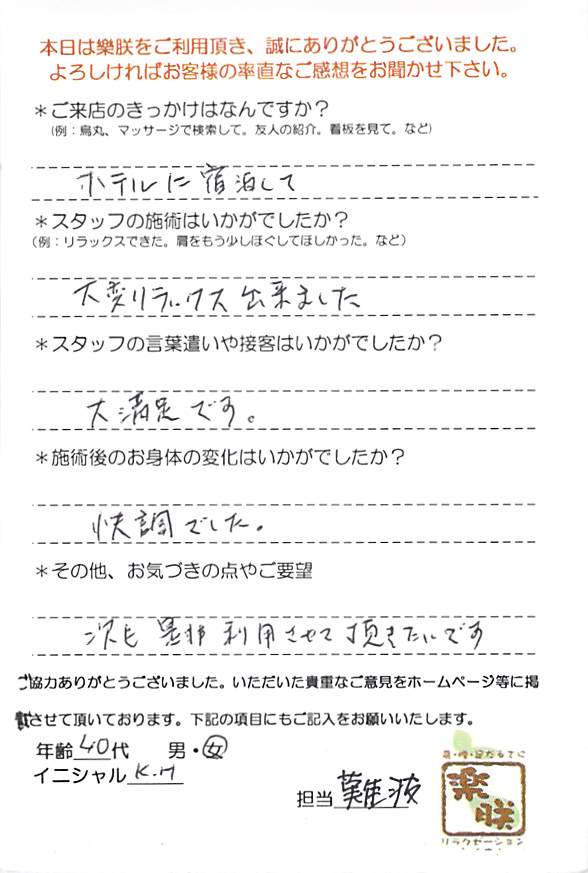 本日は樂朕をご利用頂き、誠にありがとうございました。
よろしければお客様の率直なご感想をお聞かせ下さい。
＊ご来店のきっかけはなんですか？
（例：烏丸、マッサージで検索して。友人の紹介。看板を見て。など）
ホテルに宿泊して
＊スタッフの施術はいかがでしたか？
（例：リラックスできた。肩をもう少しほぐしてほしかった。など）
大変リラックス出来ました
＊スタッフの言葉遣いや接客はいかがでしたか？
大満足です。
＊施術後のお身体の変化はいかがでしたか？
快調でした。
＊その他、お気づきの点やご要望
次も是非利用させて頂きたいです
ご協力ありがとうございました。いただいた貴重なご意見をホームページ等に掲
載させて頂いております。下記の項目にもご記入をお願いいたします。
年齢 40代 男・女
イニシャル K.H
担当 難波
楽朕
リラクゼーション